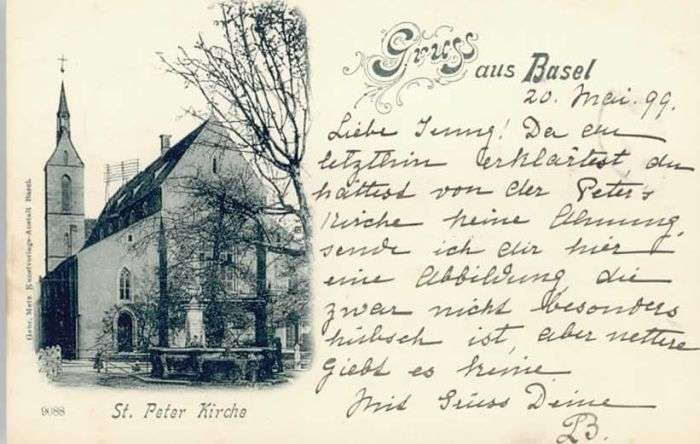 Gruss aus Basel
20. Mai. 99.
Liebe Jenny! Da du
letzthin erklärtest du
hättest von der Peters-
kirche keine Ahnung,
sende ich dir hier
eine Abbildung die
zwar nicht besonders
hübsch ist, aber nettere
giebt es keine
Mit Gruss Deine
Gebr. Metz Kunstverlags-Anstalt Basel.
9088
St. Peter Kirche